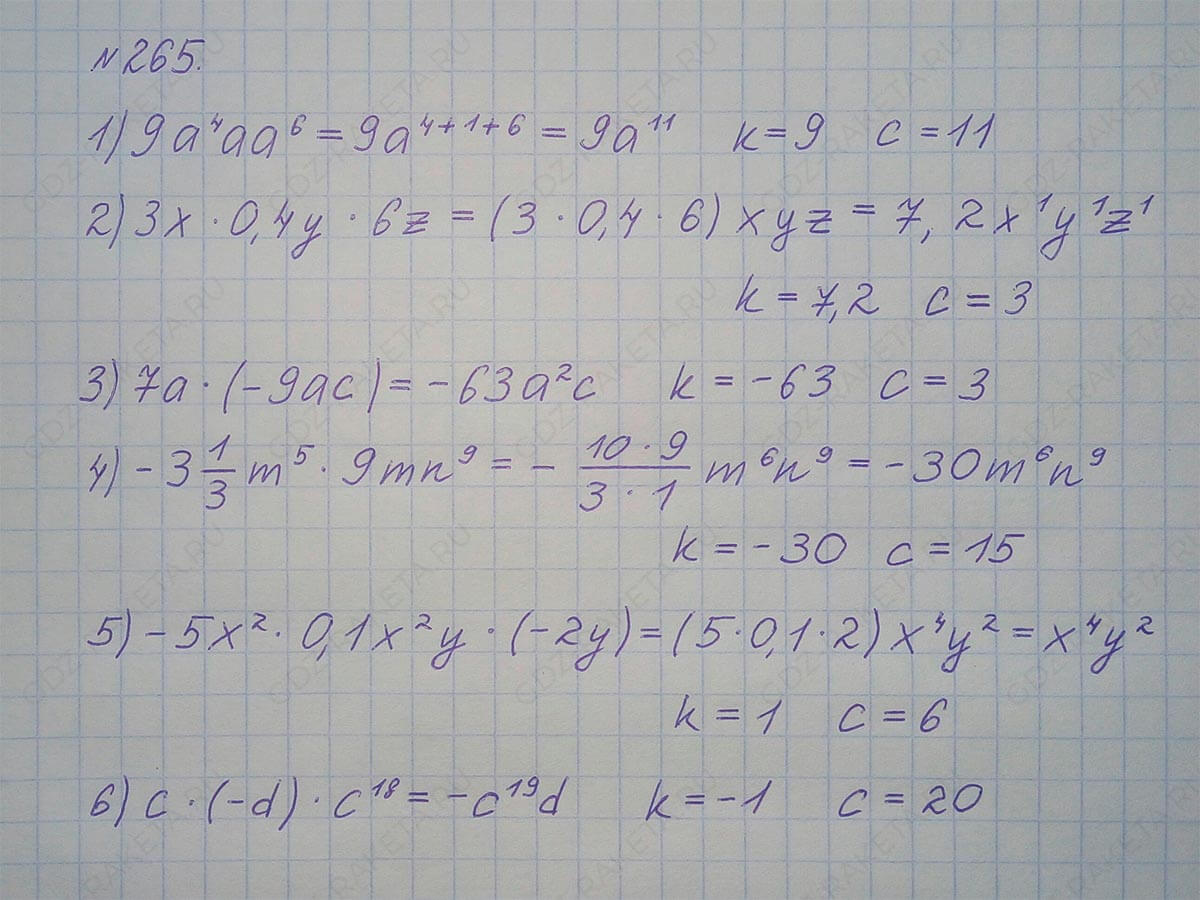 №265.
1) 9a⁴aa⁶ = 9a⁴⁺¹⁺⁶ = 9a¹¹ k = 9 c = 11
2) 3x · 0,4y · 6z = (3 · 0,4 · 6) xyz = 7,2x¹y¹z¹
k = 7,2 c = 3
3) 7a · (-9ac) = -63a²c k = -63 c = 3
4) -3 1/3 m⁵ · 9mn⁹ = - (10 · 9)/(3 · 1) m⁶n⁹ = -30m⁶n⁹
k = -30 c = 15
5) -5x² · 0,1x²y · (-2y) = (5 · 0,1 · 2) x⁴y² = x⁴y²
k = 1 c = 6
6) c · (-d) · c¹⁸ = -c¹⁹d k = -1 c = 20